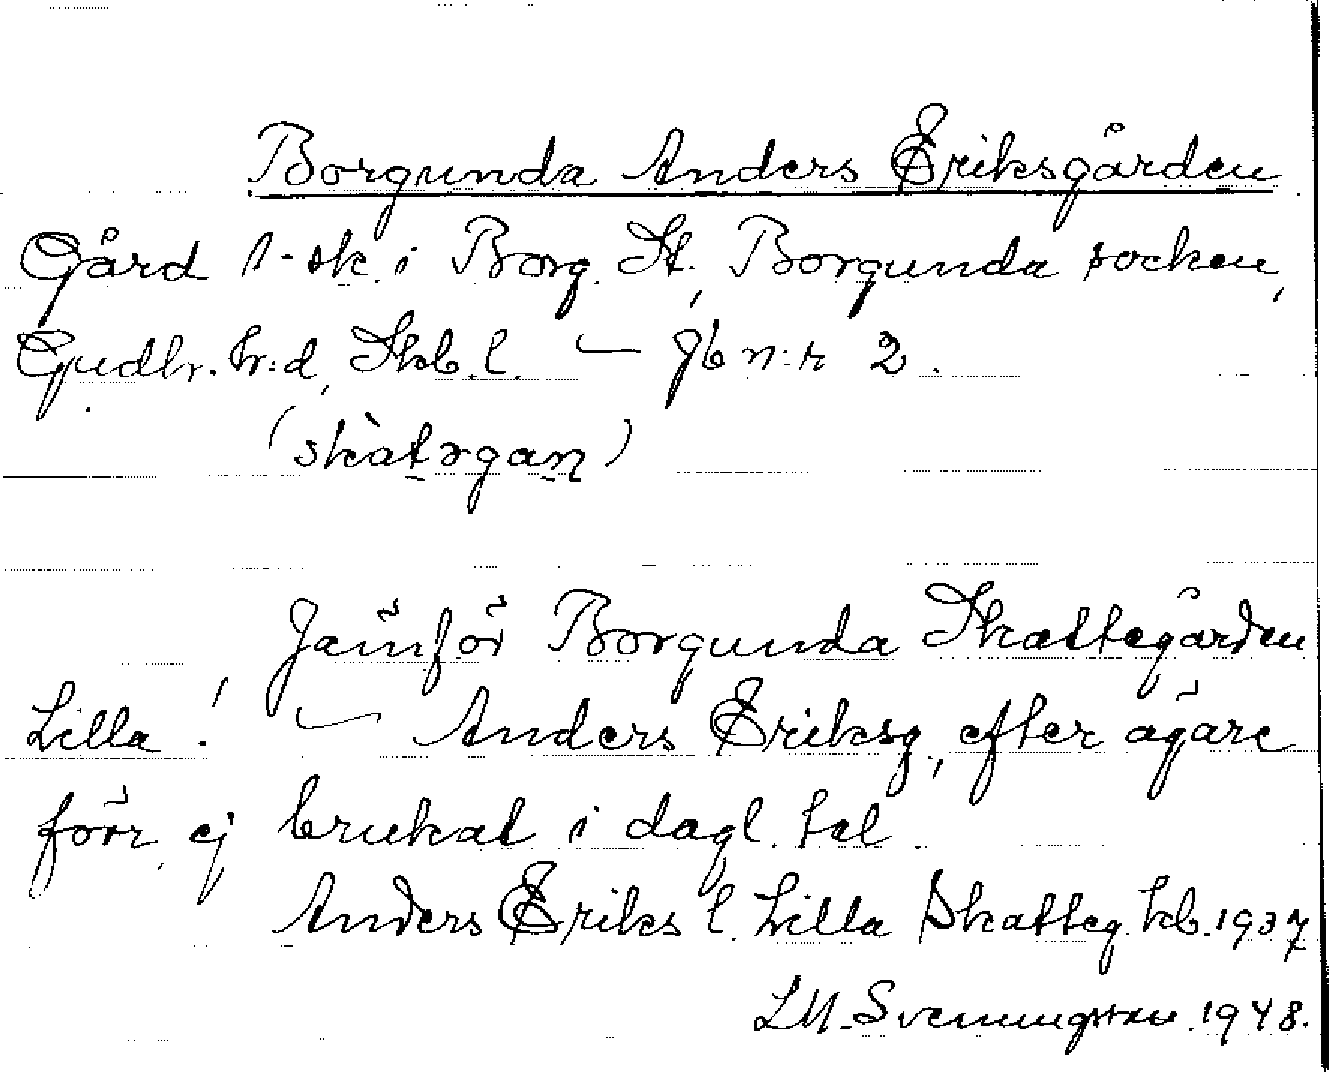 Borgunda Anders Eriksgården
Gård 1-sk. i Borg. St., Borgunda socken,
Gudhr. hr:d, Skb. l. — Jb n:r 2.
(skàtərgaṉ)
Jämför Borgunda Skattegården
Lilla! — Anders Eriksg., efter ägare
förr, ej brukat i dagl. tal.
Anders Eriks l. Lilla Skatteg. kb. 1937
LM. Svenungsson 1948.